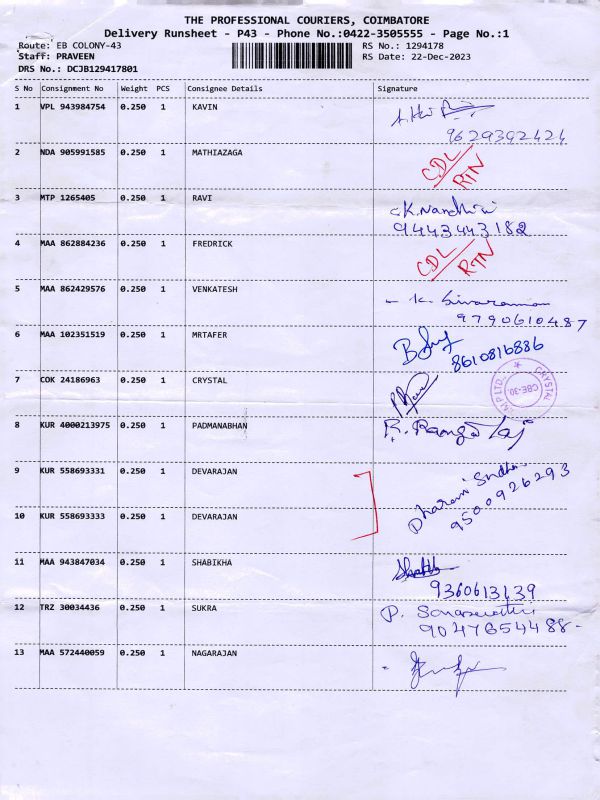 THE PROFESSIONAL COURIERS, COIMBATORE
Delivery Runsheet - P43 - Phone No.:0422-3505555 - Page No.:1
Route: EB COLONY-43 RS No.: 1294178
Staff: PRAVEEN RS Date: 22-Dec-2023
DRS No.: DCJB129417801
S No Consignment No Weight PCS Consignee Details Signature
1 VPL 943984754 0.250 1 KAVIN
9629392424
2 NDA 905991585 0.250 1 MATHIAZAGA CDL/RTN
3 MTP 1265405 0.250 1 RAVI K.Nandhini
9443443182
4 MAA 862884236 0.250 1 FREDRICK CDL/RTN
5 MAA 862429576 0.250 1 VENKATESH - K. Sivaraman
9790610487
6 MAA 102351519 0.250 1 MRTAFER
8610816886
7 COK 24186963 0.250 1 CRYSTAL CRYSTAL CBE-30. LTD.
8 KUR 4000213975 0.250 1 PADMANABHAN R. Ranga Raj
9 KUR 558693331 0.250 1 DEVARAJAN Dharani
9500926293
10 KUR 558693333 0.250 1 DEVARAJAN
11 MAA 943847034 0.250 1 SHABIKHA
9360613139
12 TRZ 30034436 0.250 1 SUKRA P. Saraswathi
9047654488-
13 MAA 572440059 0.250 1 NAGARAJAN